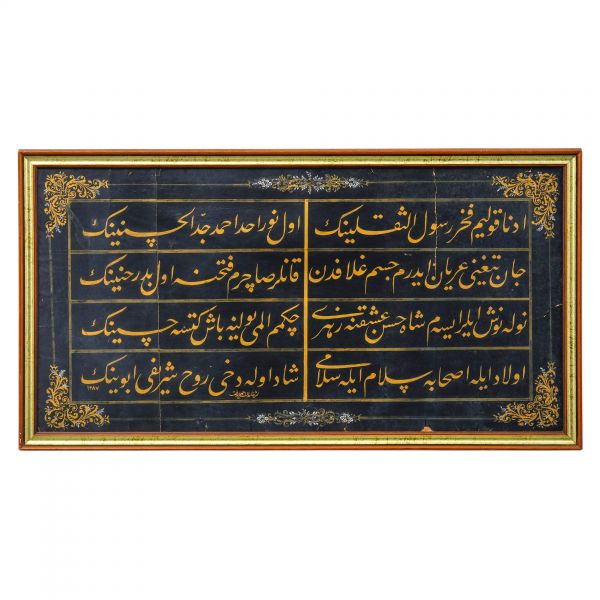 ادنا قولیم فخر رسول الثقلینك اول نور احد احمد جد الحسنینك
جان تیغنی عریان ایدرم جسم غلافدن قانلر صاچرم فتحنه اول بدر حنینك
نوله نوش ایلر ایسم شاه حسن عشقنه زهری چكمم المی یولینه باش كتسه حسینك
اولاد ایله اصحابه سلام ایله سلامی شاد اوله دخی روح شریفی ابوینك
١٢٨٧